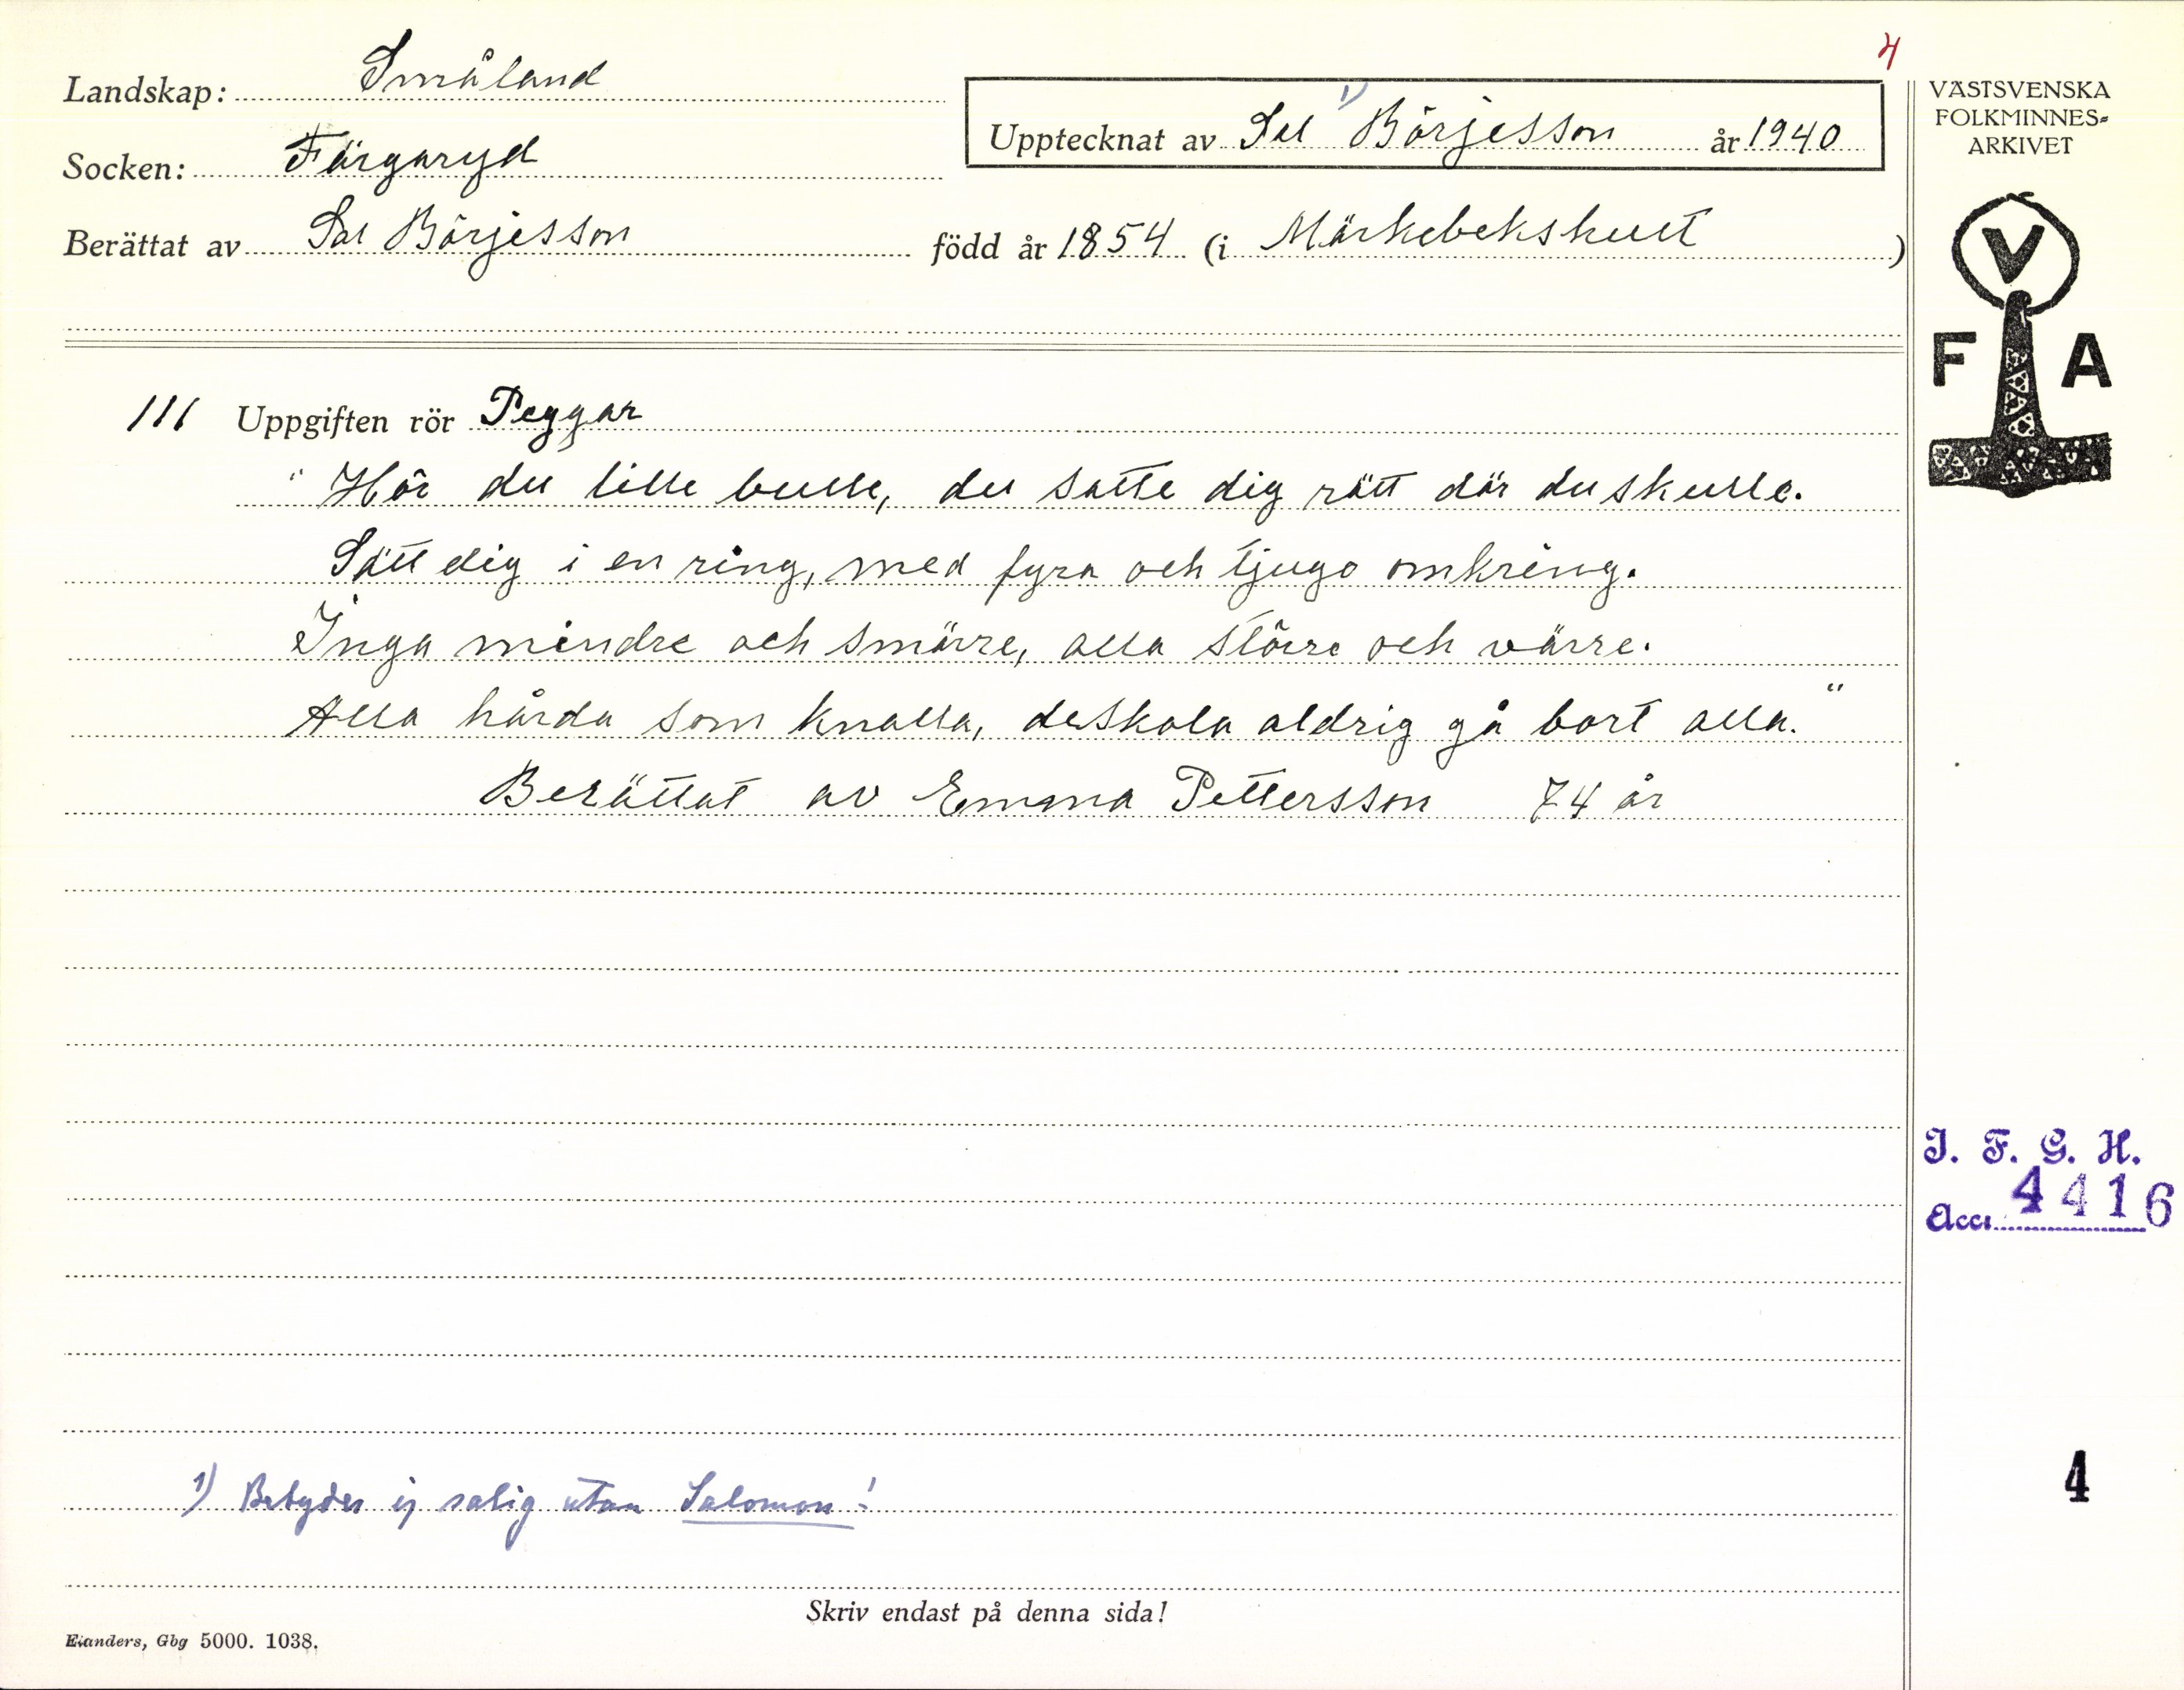 4
Landskap: Småland
Upptecknat av Sal 1) Börjesson år 1940
Socken: Färgaryd
Berättat av Sal Börjesson född år 1854 (i Märkebekshult)
VÄSTSVENSKA
FOLKMINNES=
ARKIVET
V
F A
111 Uppgiften rör Peggar
"Hör du lille bulle, du satte dig rätt där du skulle.
Sätt dig i en ring, med fyra och tjugo omkring.
Inga mindre och smärre, alla större och värre.
Alla hårda som knalla, de skola aldrig gå bort alla."
Berättat av Emma Pettersson 74 år
I. F. G. H.
Acc. 4416
4
1) Betyder ej salig utan Salomon!
Skriv endast på denna sida!
Elanders, Gbg 5000. 1038.